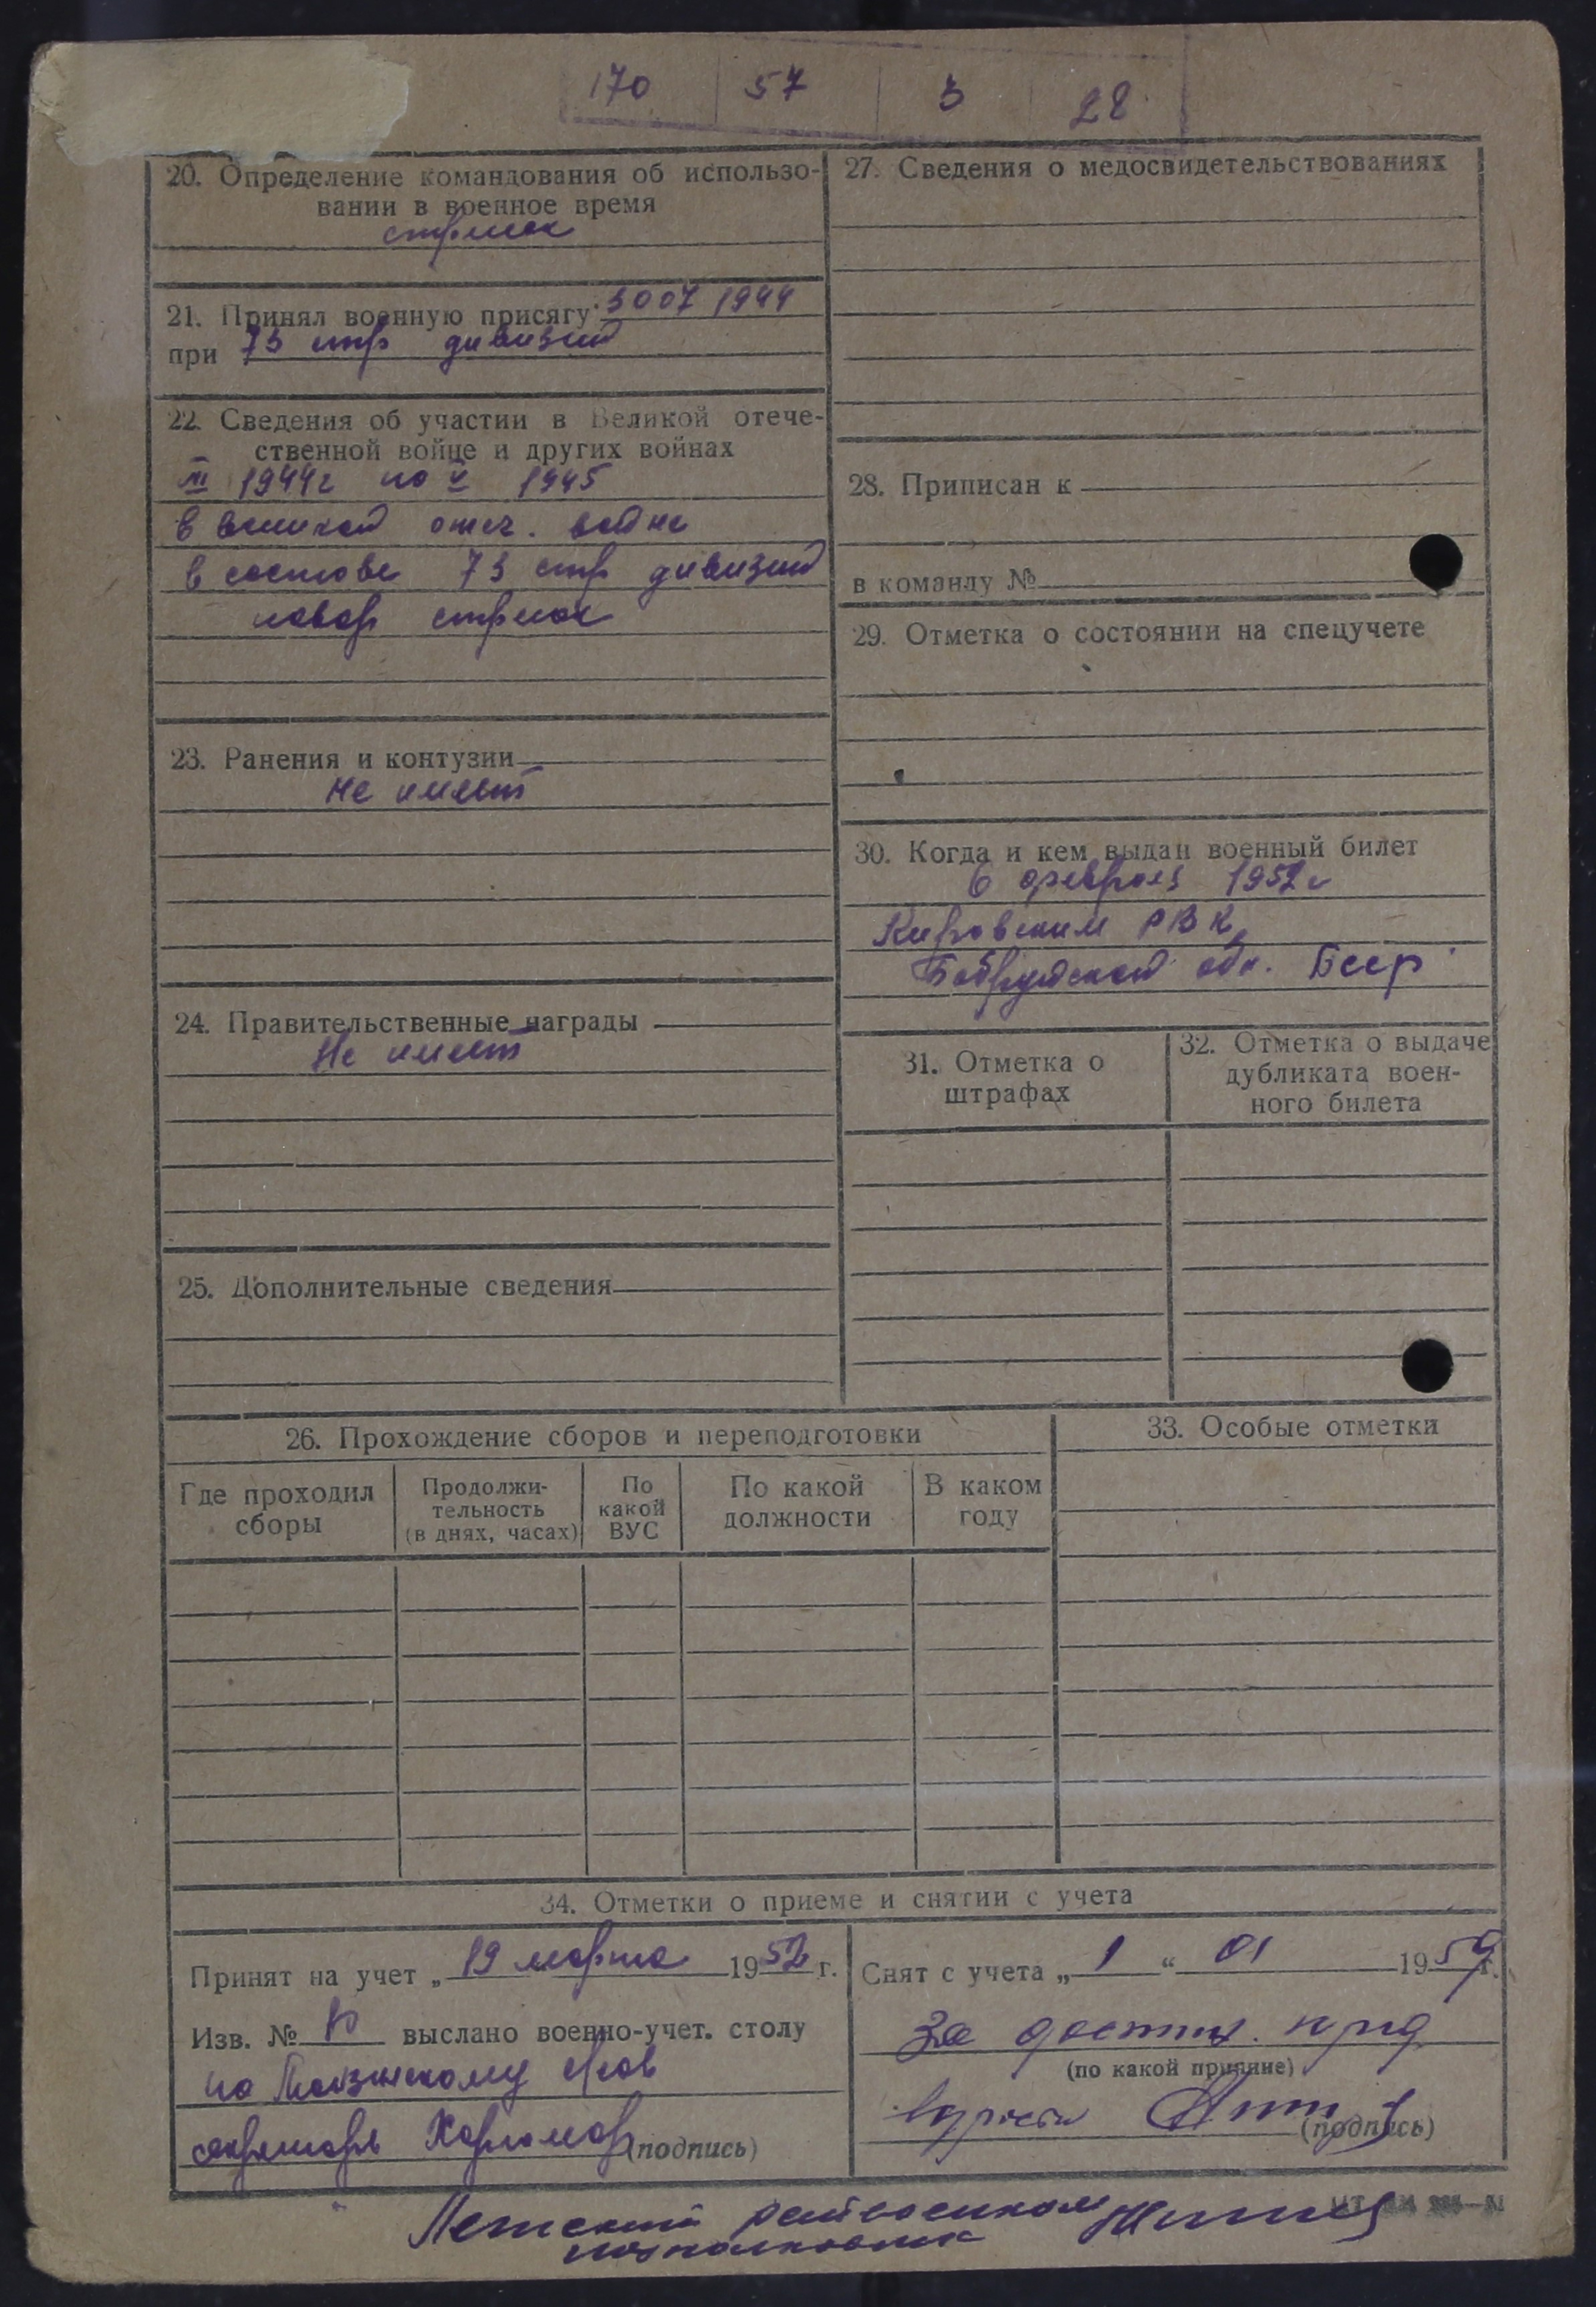 170 57 3 28
20. Определение командования об использо-
вании в военное время
стрелок
21. Принял военную присягу 30 07 1944
при 73 стр дивизии
22. Сведения об участии в Великой отече-
ственной войне и других войнах
1944г по V 1945
в великой отеч. войне
в составе 73 стр дивизии
повар стрелок
23. Ранения и контузии
Не имеет
24. Правительственные награды
Не имеет
25. Дополнительные сведения
27. Сведения о медосвидетельствованиях
28. Приписан к
в команду №
29. Отметка о состоянии на спецучете
30. Когда и кем выдан военный билет
6 февраля 1952 г
Кировским РВК
Бобруйской обл. Бсср
31. Отметка о
штрафах
32. Отметка о выдаче
дубликата воен-
ного билета
26. Прохождение сборов и переподготовки
Где проходил
сборы
Продолжи-
тельность
(в днях, часах)
По
какой
ВУС
По какой
должности
В каком
году
33. Особые отметки
34. Отметки о приеме и снятии с учета
Принят на учет „ 19 марта 1952 г.
Изв. № выслано военно-учет. столу
по
секретарь (подпись)
Снят с учета „ 1 “ 01 1959 г.
За достиж. пред
(по какой причине)
возраста (подпись)
Летский райвоенком
подполковник